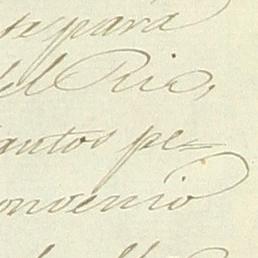 para
del Rio,
antos pe=
onvenio